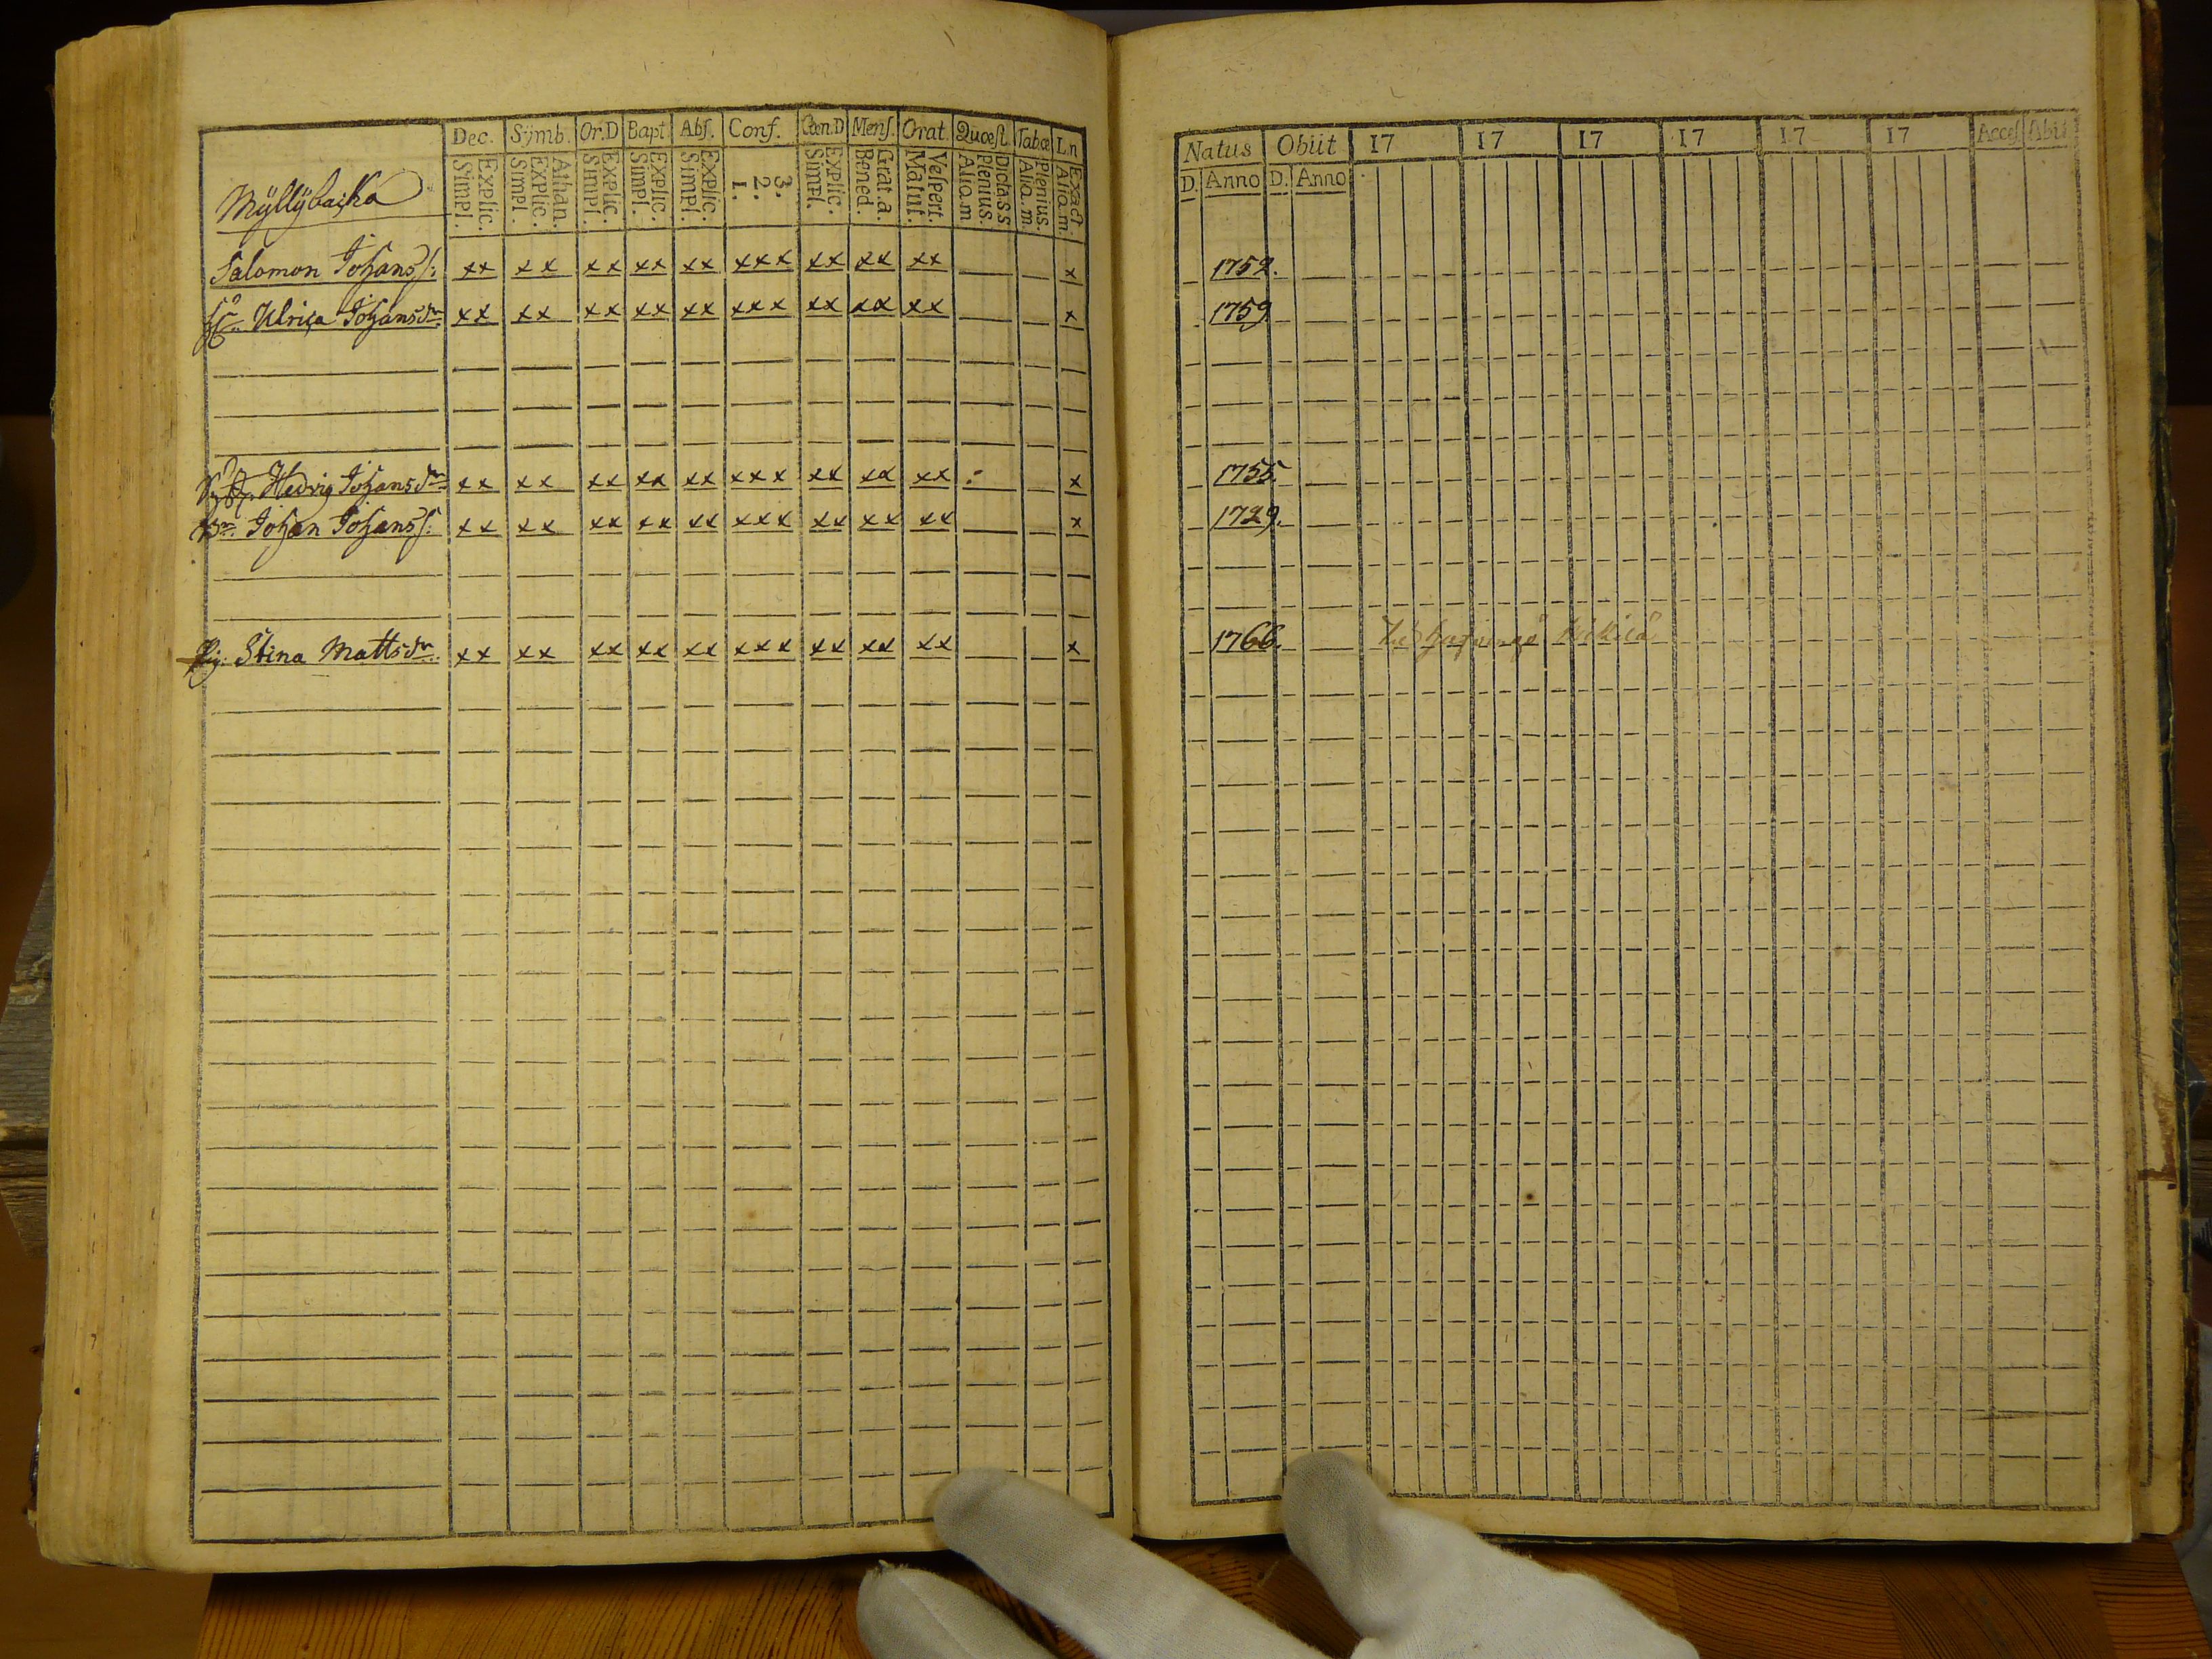 Dec. Symb. Or.D Bapt Abs. Conf. Cœn.D Mens. Orat. Quœst. Tabœ Ln
Explic. Simpl. Athan. Explic. Simpl. Explic. Simpl. Explic. Simpl. Explic. Simpl. 3. 2. 1. Explic. Simpl. Grat.a. Bened. Vespert. Matut. Dicta.s s. Plenius. Alia.m Plenius. Alia.m. Exact. Alia.m.
Mÿllÿbacka
Salomon Johans s:
xx xx xx xx xx xxx xx xx xx x
Ulrica Johansdr
xx xx xx xx xx xxx xx xx xx x
Hedvig Johansdr
xx xx xx xx xx xxx xx xx xx x
Johan Johans s:
xx xx xx xx xx xxx xx xx xx x
Pig: Stina Mattsdr
xx xx xx xx xx xxx xx xx xx x
Natus Obiit 17 17 17 17 17 17 Acces Abit
D. Anno D. Anno
1752.
1759
1755.
1729.
1766.